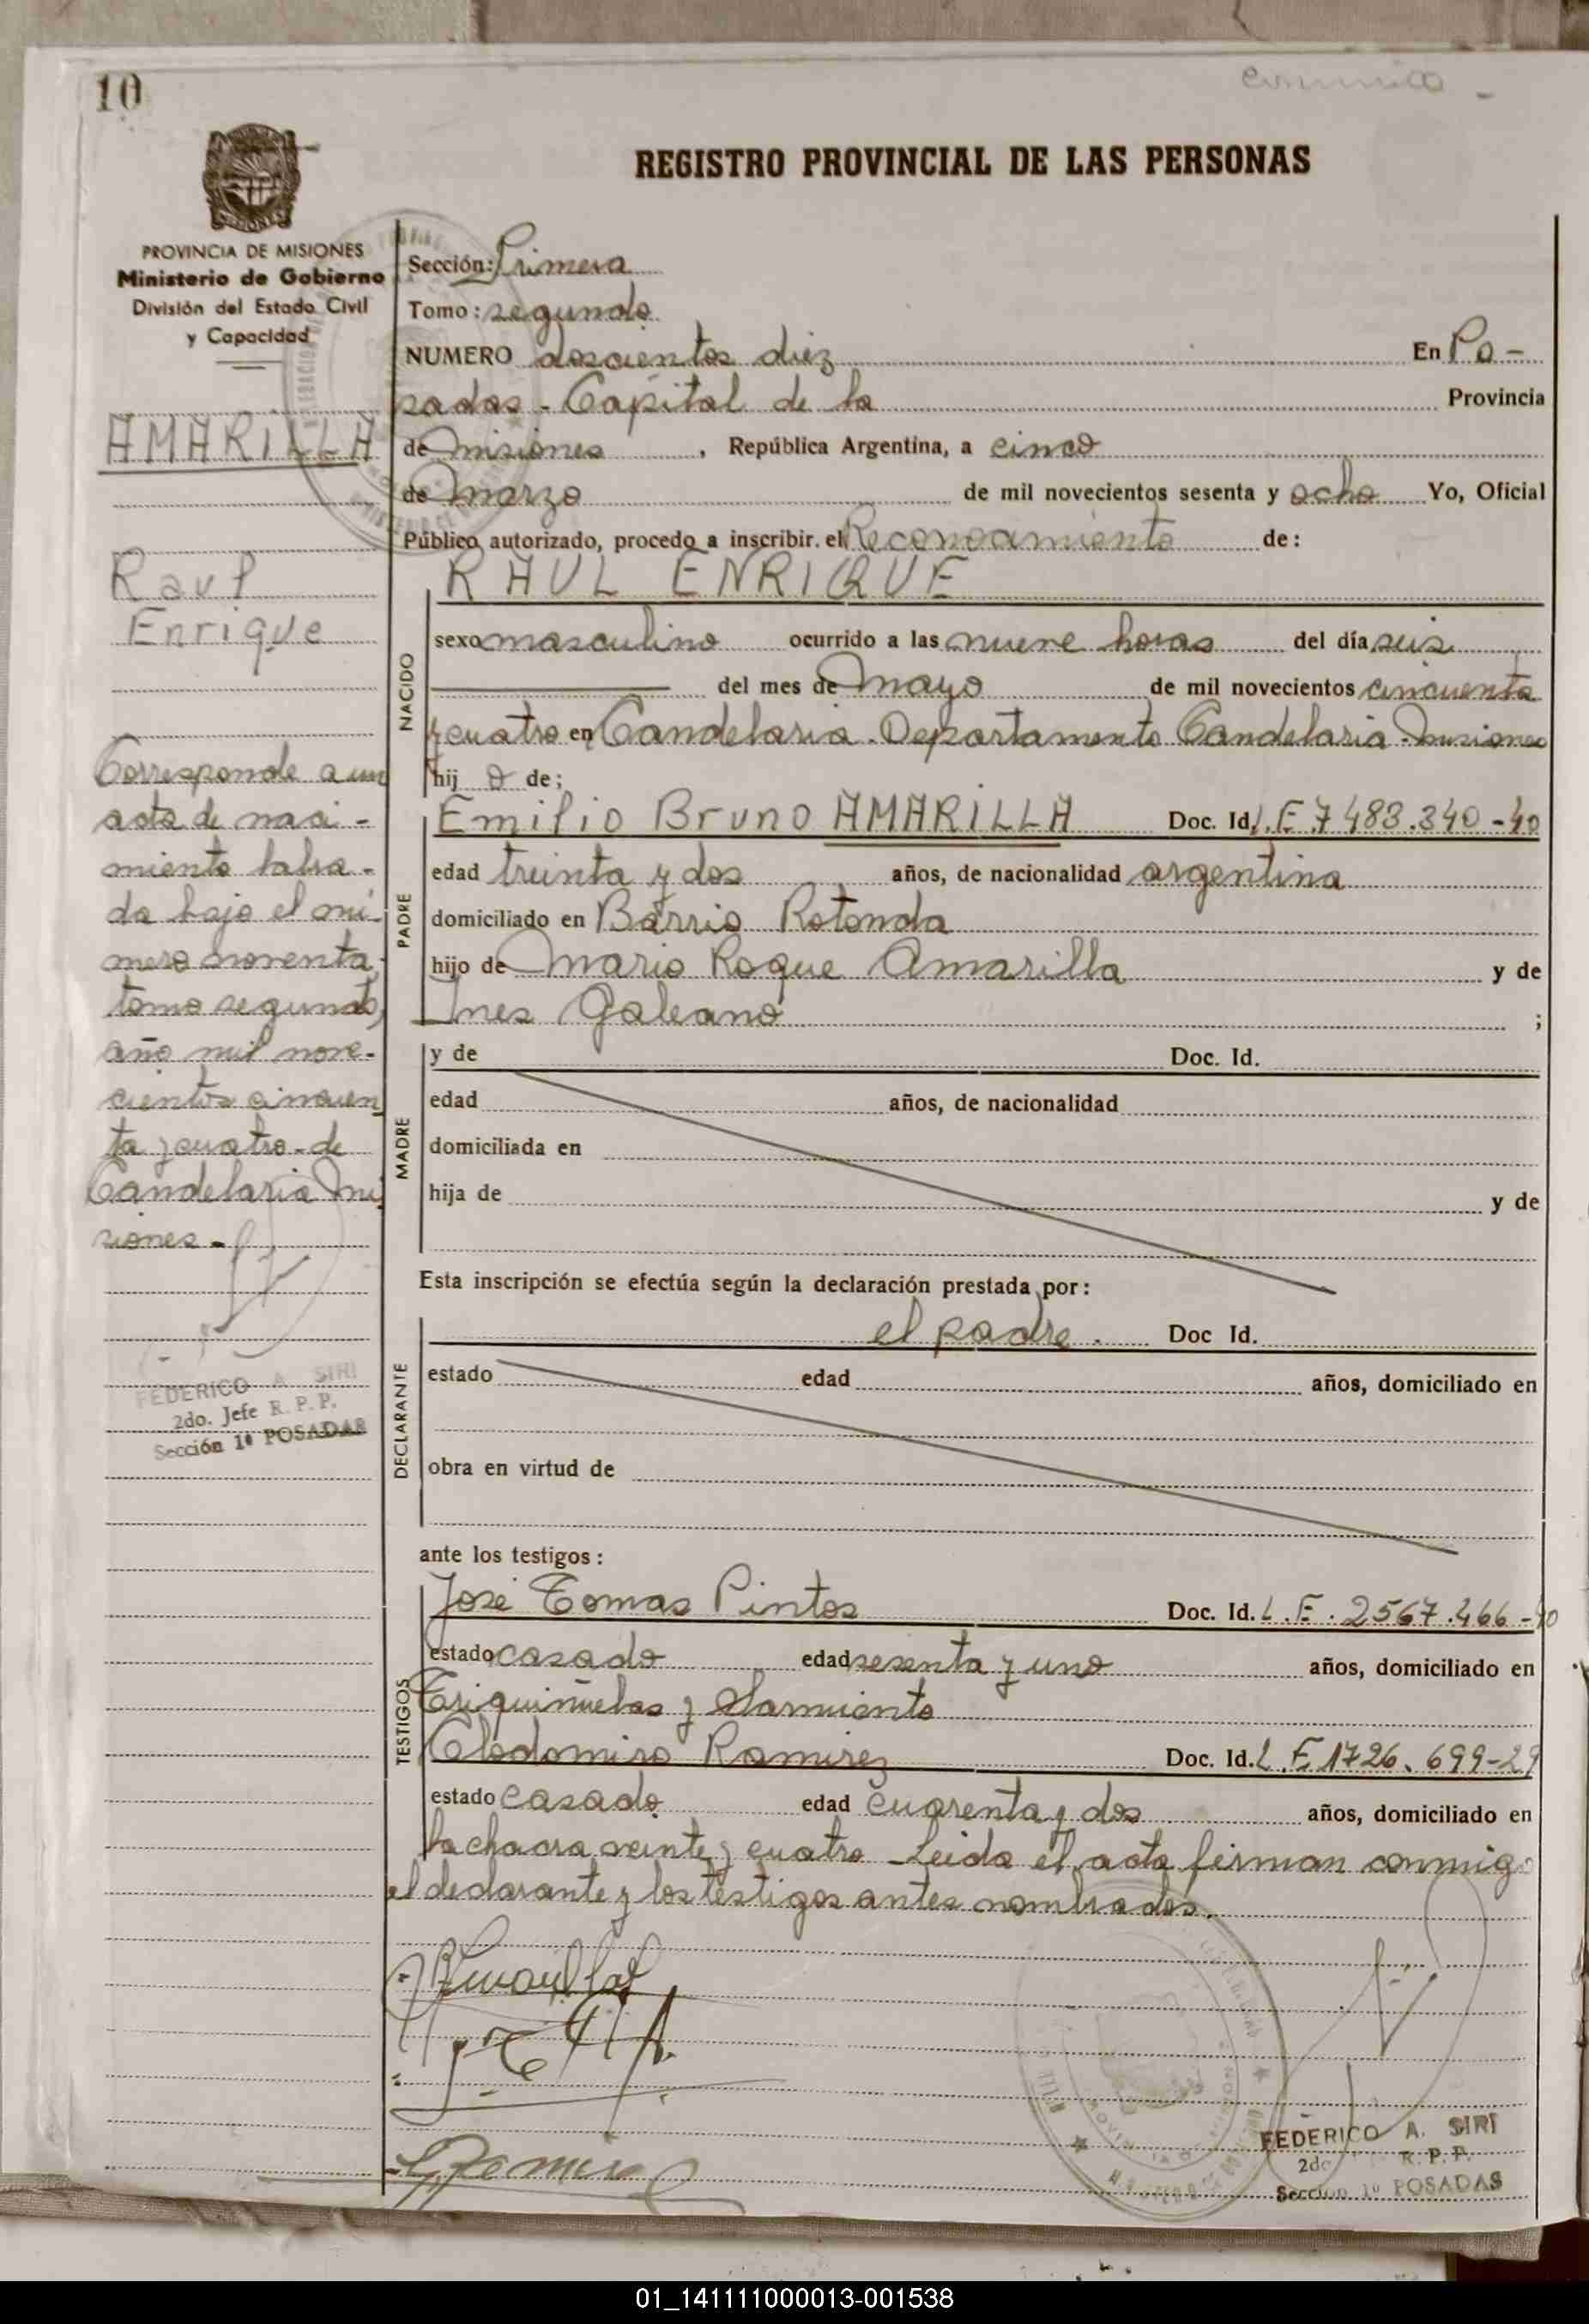 10
REGISTRO PROVINCIAL DE LAS PERSONAS
PROVINCIA DE MISIONES
Ministerio de Gobierno
División del Estado Civil
y Capacidad
AMARILLA
Raul
Enrique
Corresponde a un
acta de naci-
miento labra-
da bajo el nú-
mero noventa,
tomo segundo,
año mil nove-
cientos cincuen
ta y cuatro - de
Candelaria Mi
siones.-
FEDERICO A SIRI
2do. Jefe R. P. P.
Sección 1ª POSADAS
Sección: Primera
Tomo: segundo
NUMERO doscientos diez En Po-
sadas - Capital de la Provincia
de Misiones, República Argentina, a cinco
de Marzo de mil novecientos sesenta y ocho Yo, Oficial
Público autorizado, procedo a inscribir el Reconocimiento de:
RAUL ENRIQUE
NACIDO
sexo masculino ocurrido a las nueve horas del día seis
del mes de Mayo de mil novecientos cincuenta
y cuatro en Candelaria - Departamento Candelaria - Misiones
hij o de;
PADRE
Emilio Bruno AMARILLA Doc. Id. L.E. 7483.340-40
edad treinta y dos años, de nacionalidad argentina
domiciliado en Barrio Rotonda
hijo de Mario Roque Amarilla y de
Ines Galeano ;
MADRE
y de Doc. Id.
edad años, de nacionalidad
domiciliada en
hija de y de
Esta inscripción se efectúa según la declaración prestada por:
DECLARANTE
el padre. Doc Id.
estado edad años, domiciliado en
obra en virtud de
ante los testigos:
TESTIGOS
José Tomas Pintos Doc. Id. L.E. 2567.466-40
estado casado edad sesenta y uno años, domiciliado en
Triquiñuelas y Sarmiento
Clodomiro Ramirez Doc. Id. L.E. 1726.699-29
estado casado edad cuarenta y dos años, domiciliado en
la chacra veinte y cuatro - Leida el acta firman conmigo
el declarante y los testigos antes nombrados.
FEDERICO A. SIRI
R. P. P.
Sección 1ª POSADAS
01_141111000013-001538